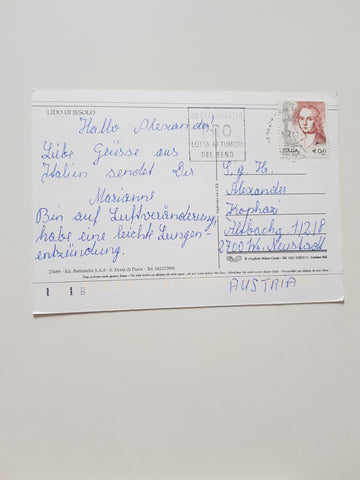 LIDO DI JESOLO
Hallo Alexander!
Liebe Grüsse aus
Italien sendet Dir
Marianne
Bin auf Luftveränderung,
habe eine leichte Lungen-
entzündung.
LOTTA AI TUMORI
DEL SENO
ITALIA
S.g. Hr.
Alexander
Kophazi
Altbachg. 1/2/8
2700 Wr. Neustadt
AUSTRIA
23688 - Ed. Battistella S.A.S - S. Donà di Piave - Tel. 042153891
1 18